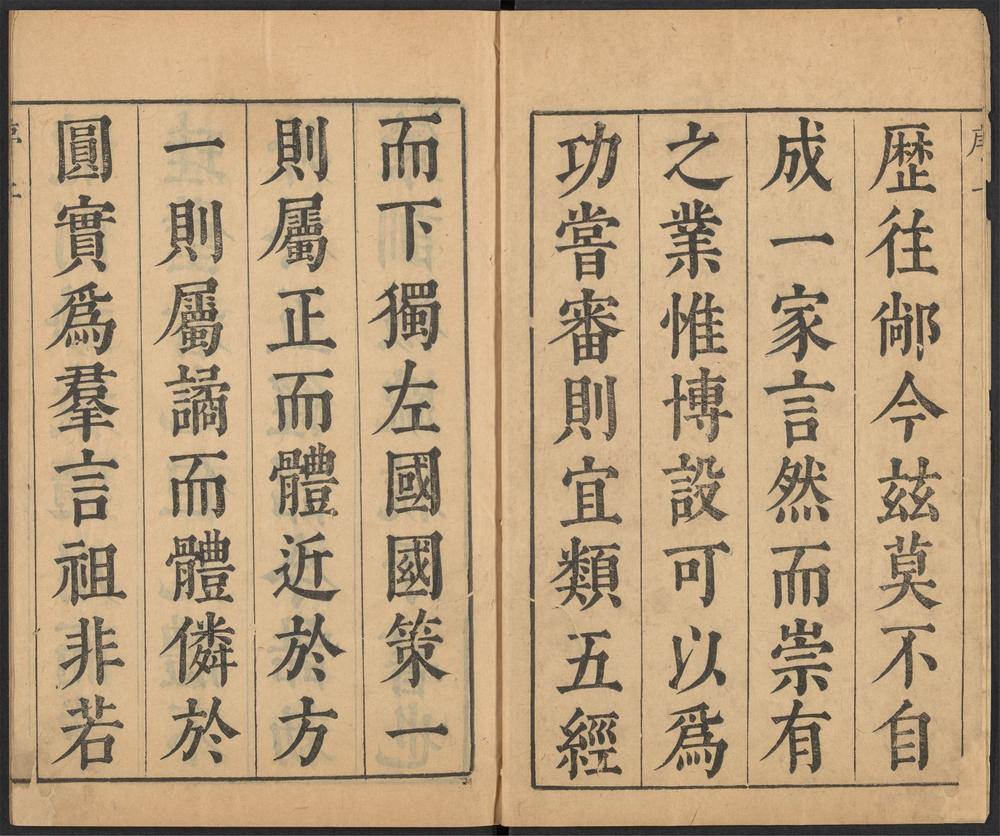 歴往鄗今玆莫不自
成一家言然而崇有
之業惟博設可以爲
功嘗審則宜類五經
而下獨左國國策一
則屬正而體近於方
一則屬譎而體僯於
圓實爲羣言祖非若